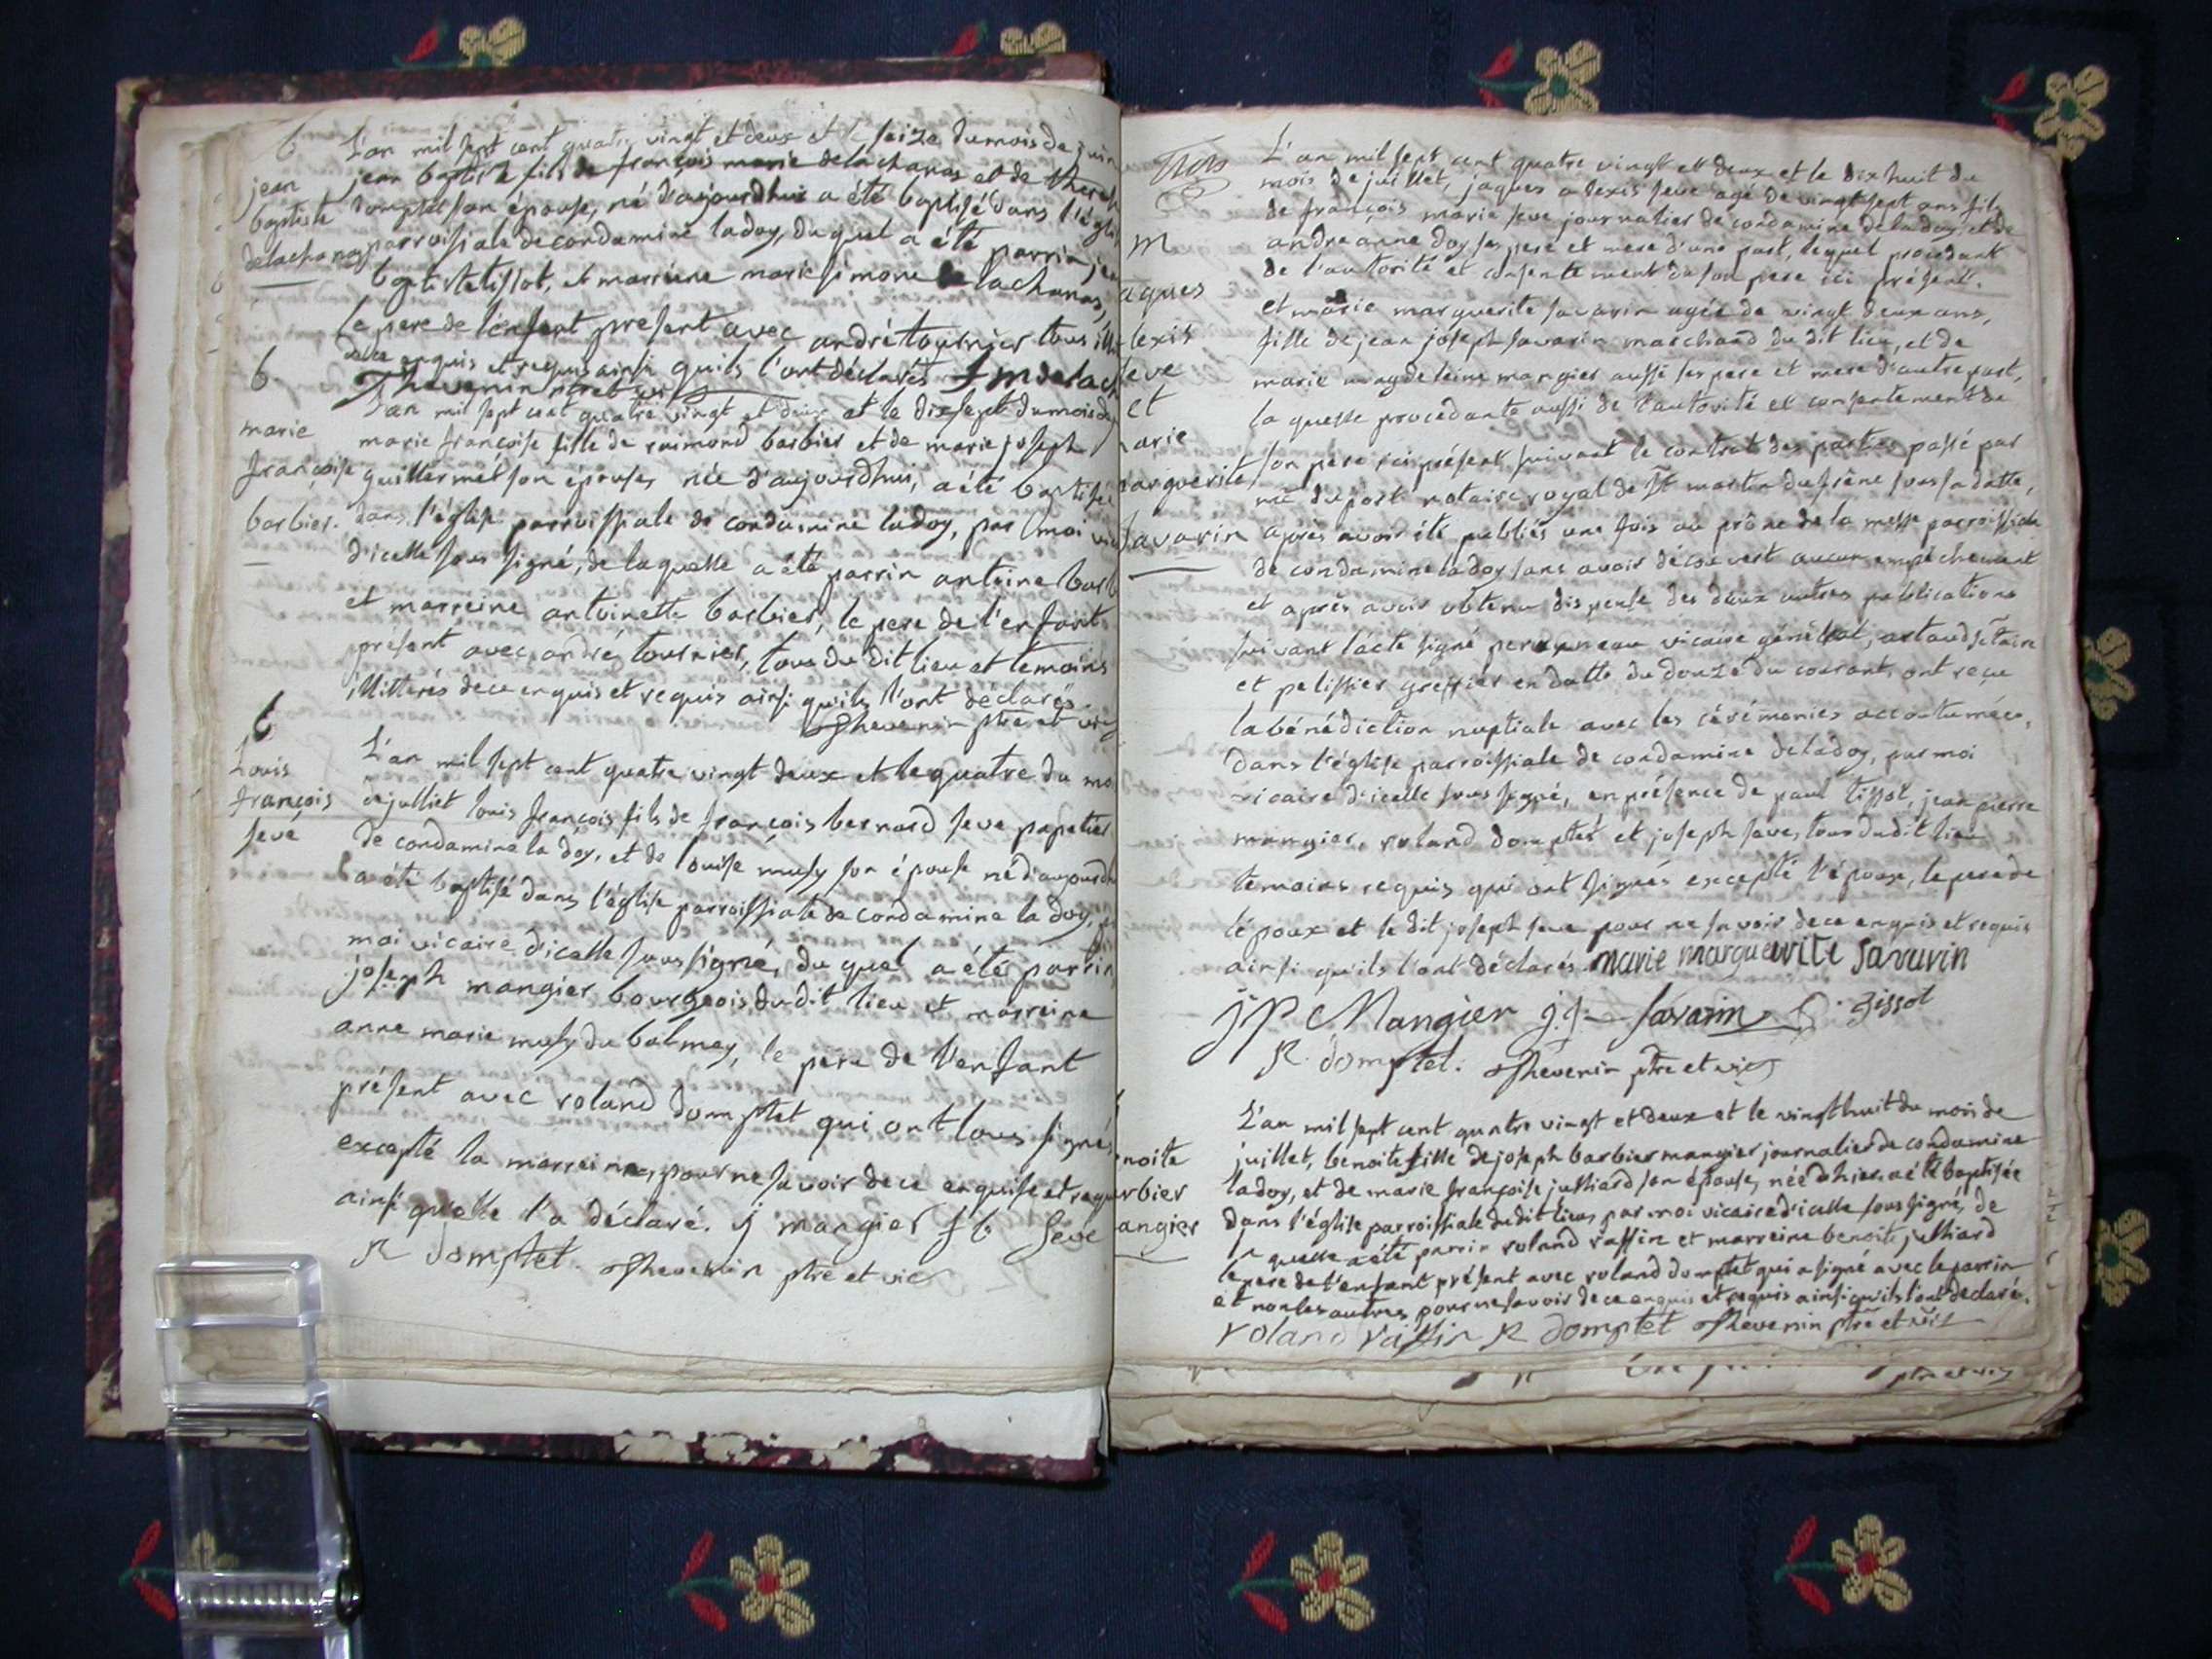 b
L'an mil sept cent quatre vingt et deux et le seize du mois de juin
jean
jean baptiste fils de françois marie delachanas et de
baptiste
domptet son épouse, né d'aujourdhui a été baptisé dans l'église
delachanas
parroissiale de condamine ladoy, duquel a été parrin jean
baptiste tissot, et marreine marie simone lachanas,
le pere de l'enfant present avec andré tournier tous
dece enquis et requis ainsi quils l'ont déclarés f m delach
Thevenin ptre et vic
b
L'an mil sept cent quatre vingt et deux et le dixsept du mois de
marie
marie françoise fille de raimond barbier et de marie joseph
françoise
guillermet son épouse, née d'aujourdhui, a été baptisée
barbier.
dans l'église parroissiale de condamine ladoy, par moi vic
d'icelle sous signé, de laquelle a été parrin antoine barb
et marreine antoinette barbier, le pere de l'enfant
présent avec andré tournier, tous du dit lieu et temoins
illitterés dece enquis et requis ainsi quils l'ont déclarés.
Thevenin ptre et vic
b
L'an mil sept cent quatre vingt deux et le quatre du mo
Louis
françois
de julliet louis françois fils de françois bernard seve papetier
seve
de condamine la doy, et de louise musy son épouse né d'aujourdh
a été baptisé dans l'église parroissiale de condamine la doy, p
moi vicaire d'icelle sous signé, du quel a été parrin
joseph mangier bourgeois du dit lieu et marreine
anne marie musy du balmay, le pere de l'enfant
présent avec roland domptet qui ont tous signé
excepté la marreine, pour ne savoir dece enquise et requ
ainsi qu'elle l'a déclaré. j mangier f b Seve
R domptet. Thevenin ptre et vic
Trois
L'an mil sept cent quatre vingt et deux et le dix huit du
mois de juillet, jaques alexis seve agé de vingt sept ans fils
de françois marie seve journalier de condamine de la doy, et de
m
andreanne doy ses pere et mere d'une part, lequel procedant
de l'autorité et consentement de son pere ici présent.
aques
et marie marguerite savarin agée de vingt deux ans,
lexis
fille de jean joseph savarin marchand du dit lieu, et de
eve
marie magdeleine mangier aussi ses pere et mere d'autre part,
et
la quelle procedante aussi de l'autorité et consentement de
arie
son pere ici présent suivant le contrat des parties passé par
arguerite
me duport notaire royal de St martin dufrêne sous sa datte,
savarin
après avoir été publiés une fois au prône de la messe parroissiale
de condamine ladoy sans avoir découvert aucun empêchement
et après avoir obtenu dispense des deux autres publications
suivant l'acte signé vicaire général, artaud
et pelissier greffier en datte du douze du courant, ont reçu
la bénédiction nuptiale avec les cérémonies accoutumées,
dans l'église parroissiale de condamine de ladoy, par moi
vicaire d'icelle sous signé, en présence de paul tissot, jean pierre
mangier, roland domptet et joseph seve, tous dudit lieu
temoins requis qui ont signés excepté l'époux, le pere de
l'époux et le dit joseph seve pour ne savoir dece enquis et requis
ainsi qu'ils l'ont déclarés. marie marguerite Savarin
jp Mangier j.j. Savarin P. Tissot
R. domptet. Thevenin ptre et vic
L'an mil sept cent quatre vingt et deux et le vingt huit du mois de
noite
juillet, benoite fille de joseph barbier mangier journalier de condamine
rbier
ladoy, et de marie françoise julliard son épouse, née d'hier, a été baptisée
angier
dans l'église parroissiale dudit lieu, par moi vicaire d'icelle sous signé, de
la quelle a été parrin roland raffin et marreine benoite julliard
le pere de l'enfant présent avec roland domptet qui a signé avec le parrin
et non les autres pour ne savoir dece enquis et requis ainsi qu'ils l'ont declaré.
roland raffin R domptet Thevenin ptre et vic
ptre et vic